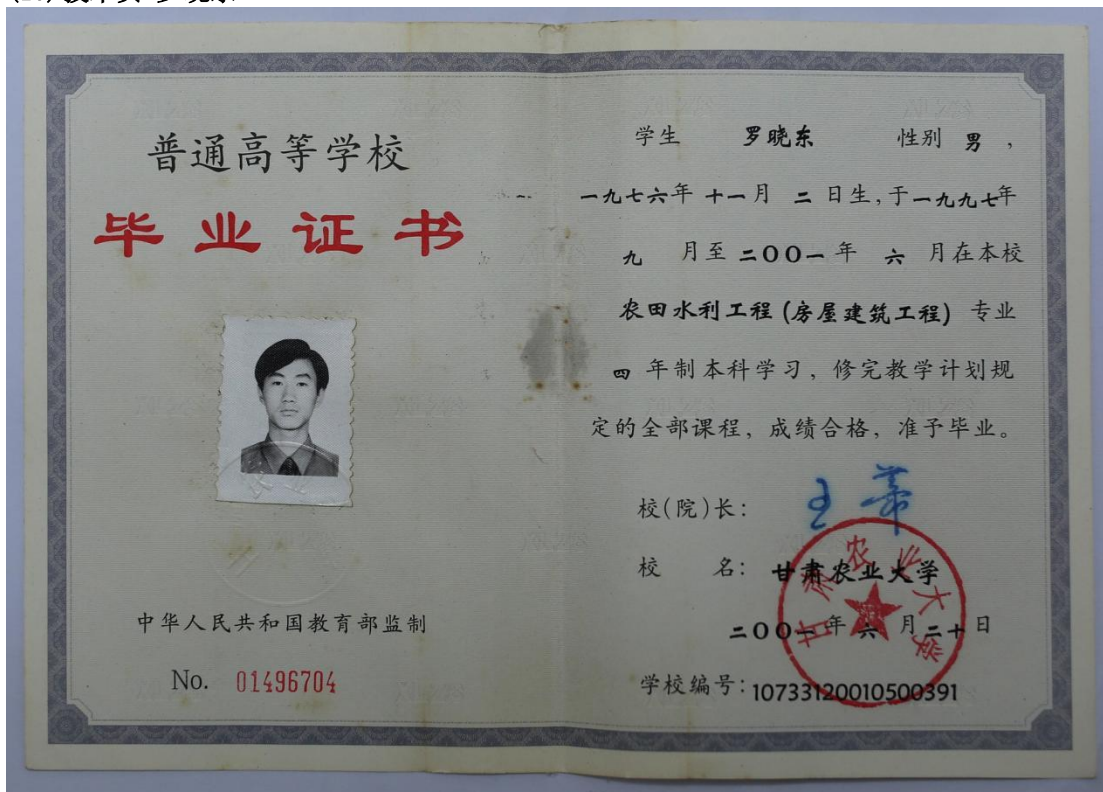 普通高等学校
毕业证书
中华人民共和国教育部监制
No. 01496704
学生 罗晓东 性别 男，
一九七六年 十一月 二 日生，于一九九七年
九 月至 二00一 年 六 月在本校
农田水利工程(房屋建筑工程) 专业
四 年制本科学习，修完教学计划规
定的全部课程，成绩合格，准予毕业。
校(院)长：
校 名：甘肃农业大学
二00一 年 六 月二十日
学校编号：107331200105003​91
甘肃农业大学